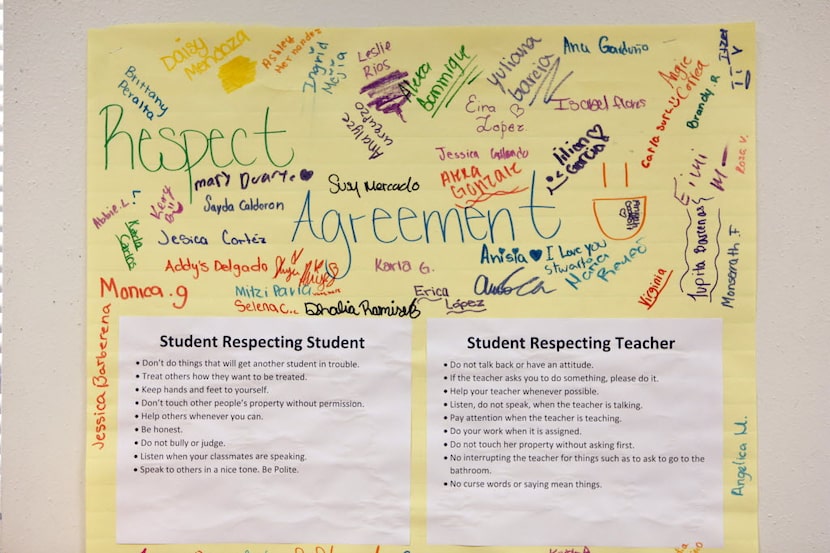 Daisy
Mendoza
Ashley
Hernandez
Ingrid
Mejia
Leslie
Rios
Alexa
Dominique
Yuliana
Garcia
Ana Garduño
Itzel
V
Brittany
Peralta
Analyze
Eira
Lopez
Isabel flores
Angie
Correa
Brandy R
Carla
Respect
Jessica Galando
Lilian
Garcia
Roza V.
Abbie L.
Kery
Mary Duarte
Susy Mercado
Gonzalez
Mimi
Karla
Carlos
Sayda Calderon
Agreement
Jesica Cortéz
Anisia
I Love you
Stuwart
Lupita Barcenas
Monserrath F
Addy's Delgado
Karla G.
Virginia
Monica.g
Mitzi
Erica
López
Selena C..
Dhalia Ramirez
Jessica Barberena
Student Respecting Student
• Don't do things that will get another student in trouble.
• Treat others how they want to be treated.
• Keep hands and feet to yourself.
• Don't touch other people's property without permission.
• Help others whenever you can.
• Be honest.
• Do not bully or judge.
• Listen when your classmates are speaking.
• Speak to others in a nice tone. Be Polite.
Student Respecting Teacher
• Do not talk back or have an attitude.
• If the teacher asks you to do something, please do it.
• Help your teacher whenever possible.
• Listen, do not speak, when the teacher is talking.
• Pay attention when the teacher is teaching.
• Do your work when it is assigned.
• Do not touch her property without asking first.
• No interrupting the teacher for things such as to ask to go to the
bathroom.
• No curse words or saying mean things.
Angelica M.